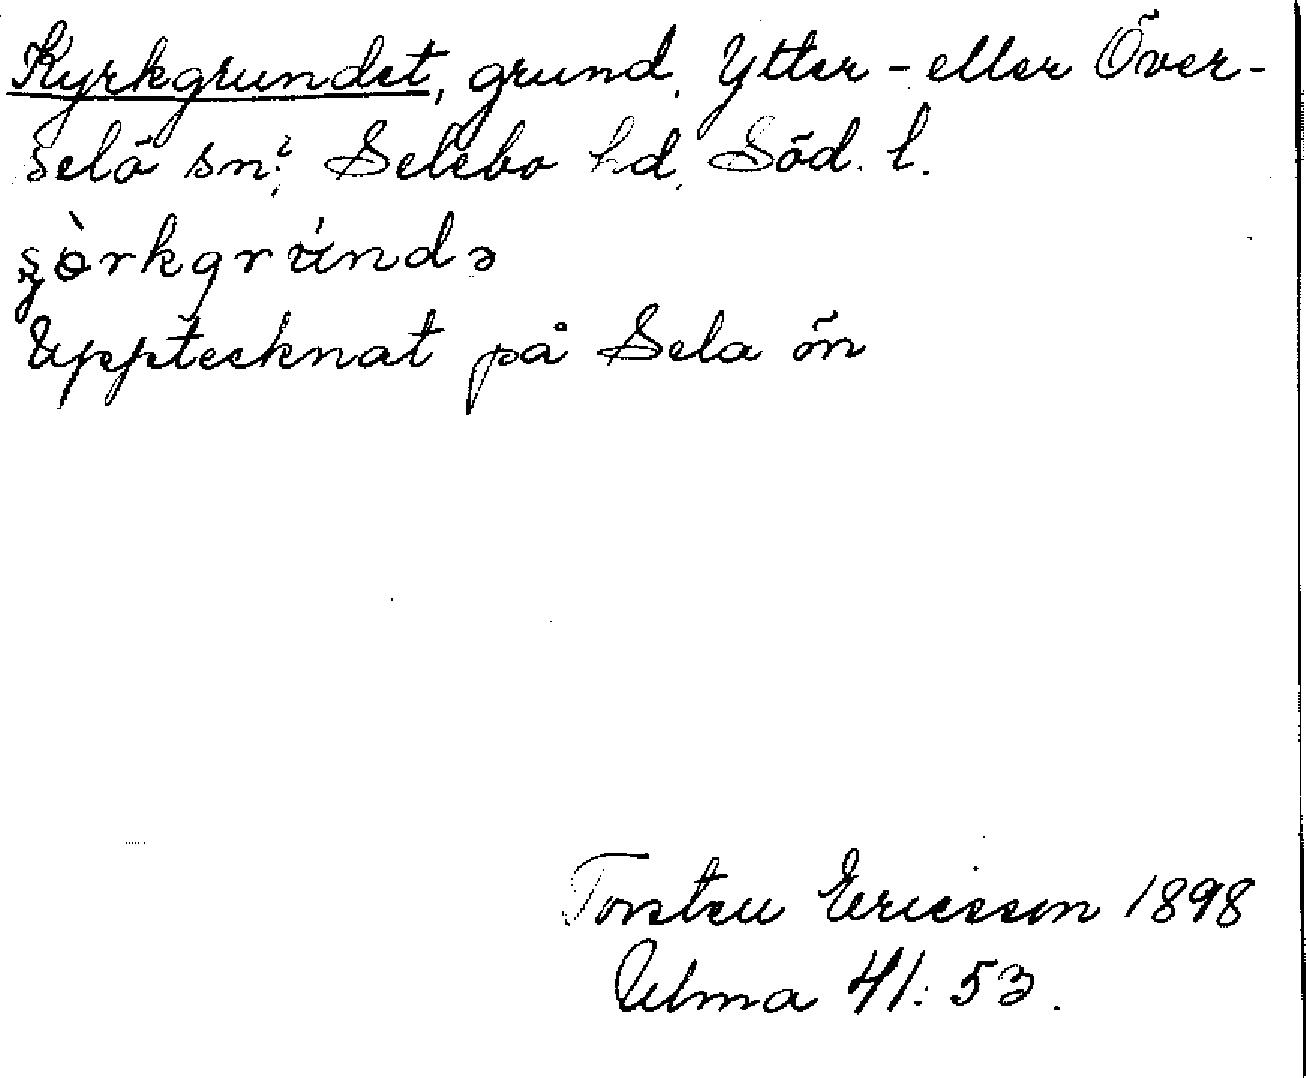 Kyrkgrundet, grund, Ytter- eller Över-
selö sn?, Selebo hd, Söd. l.
Upptecknat på Sela ön
Torsten Ericsson 1898
Ulma 41:53.